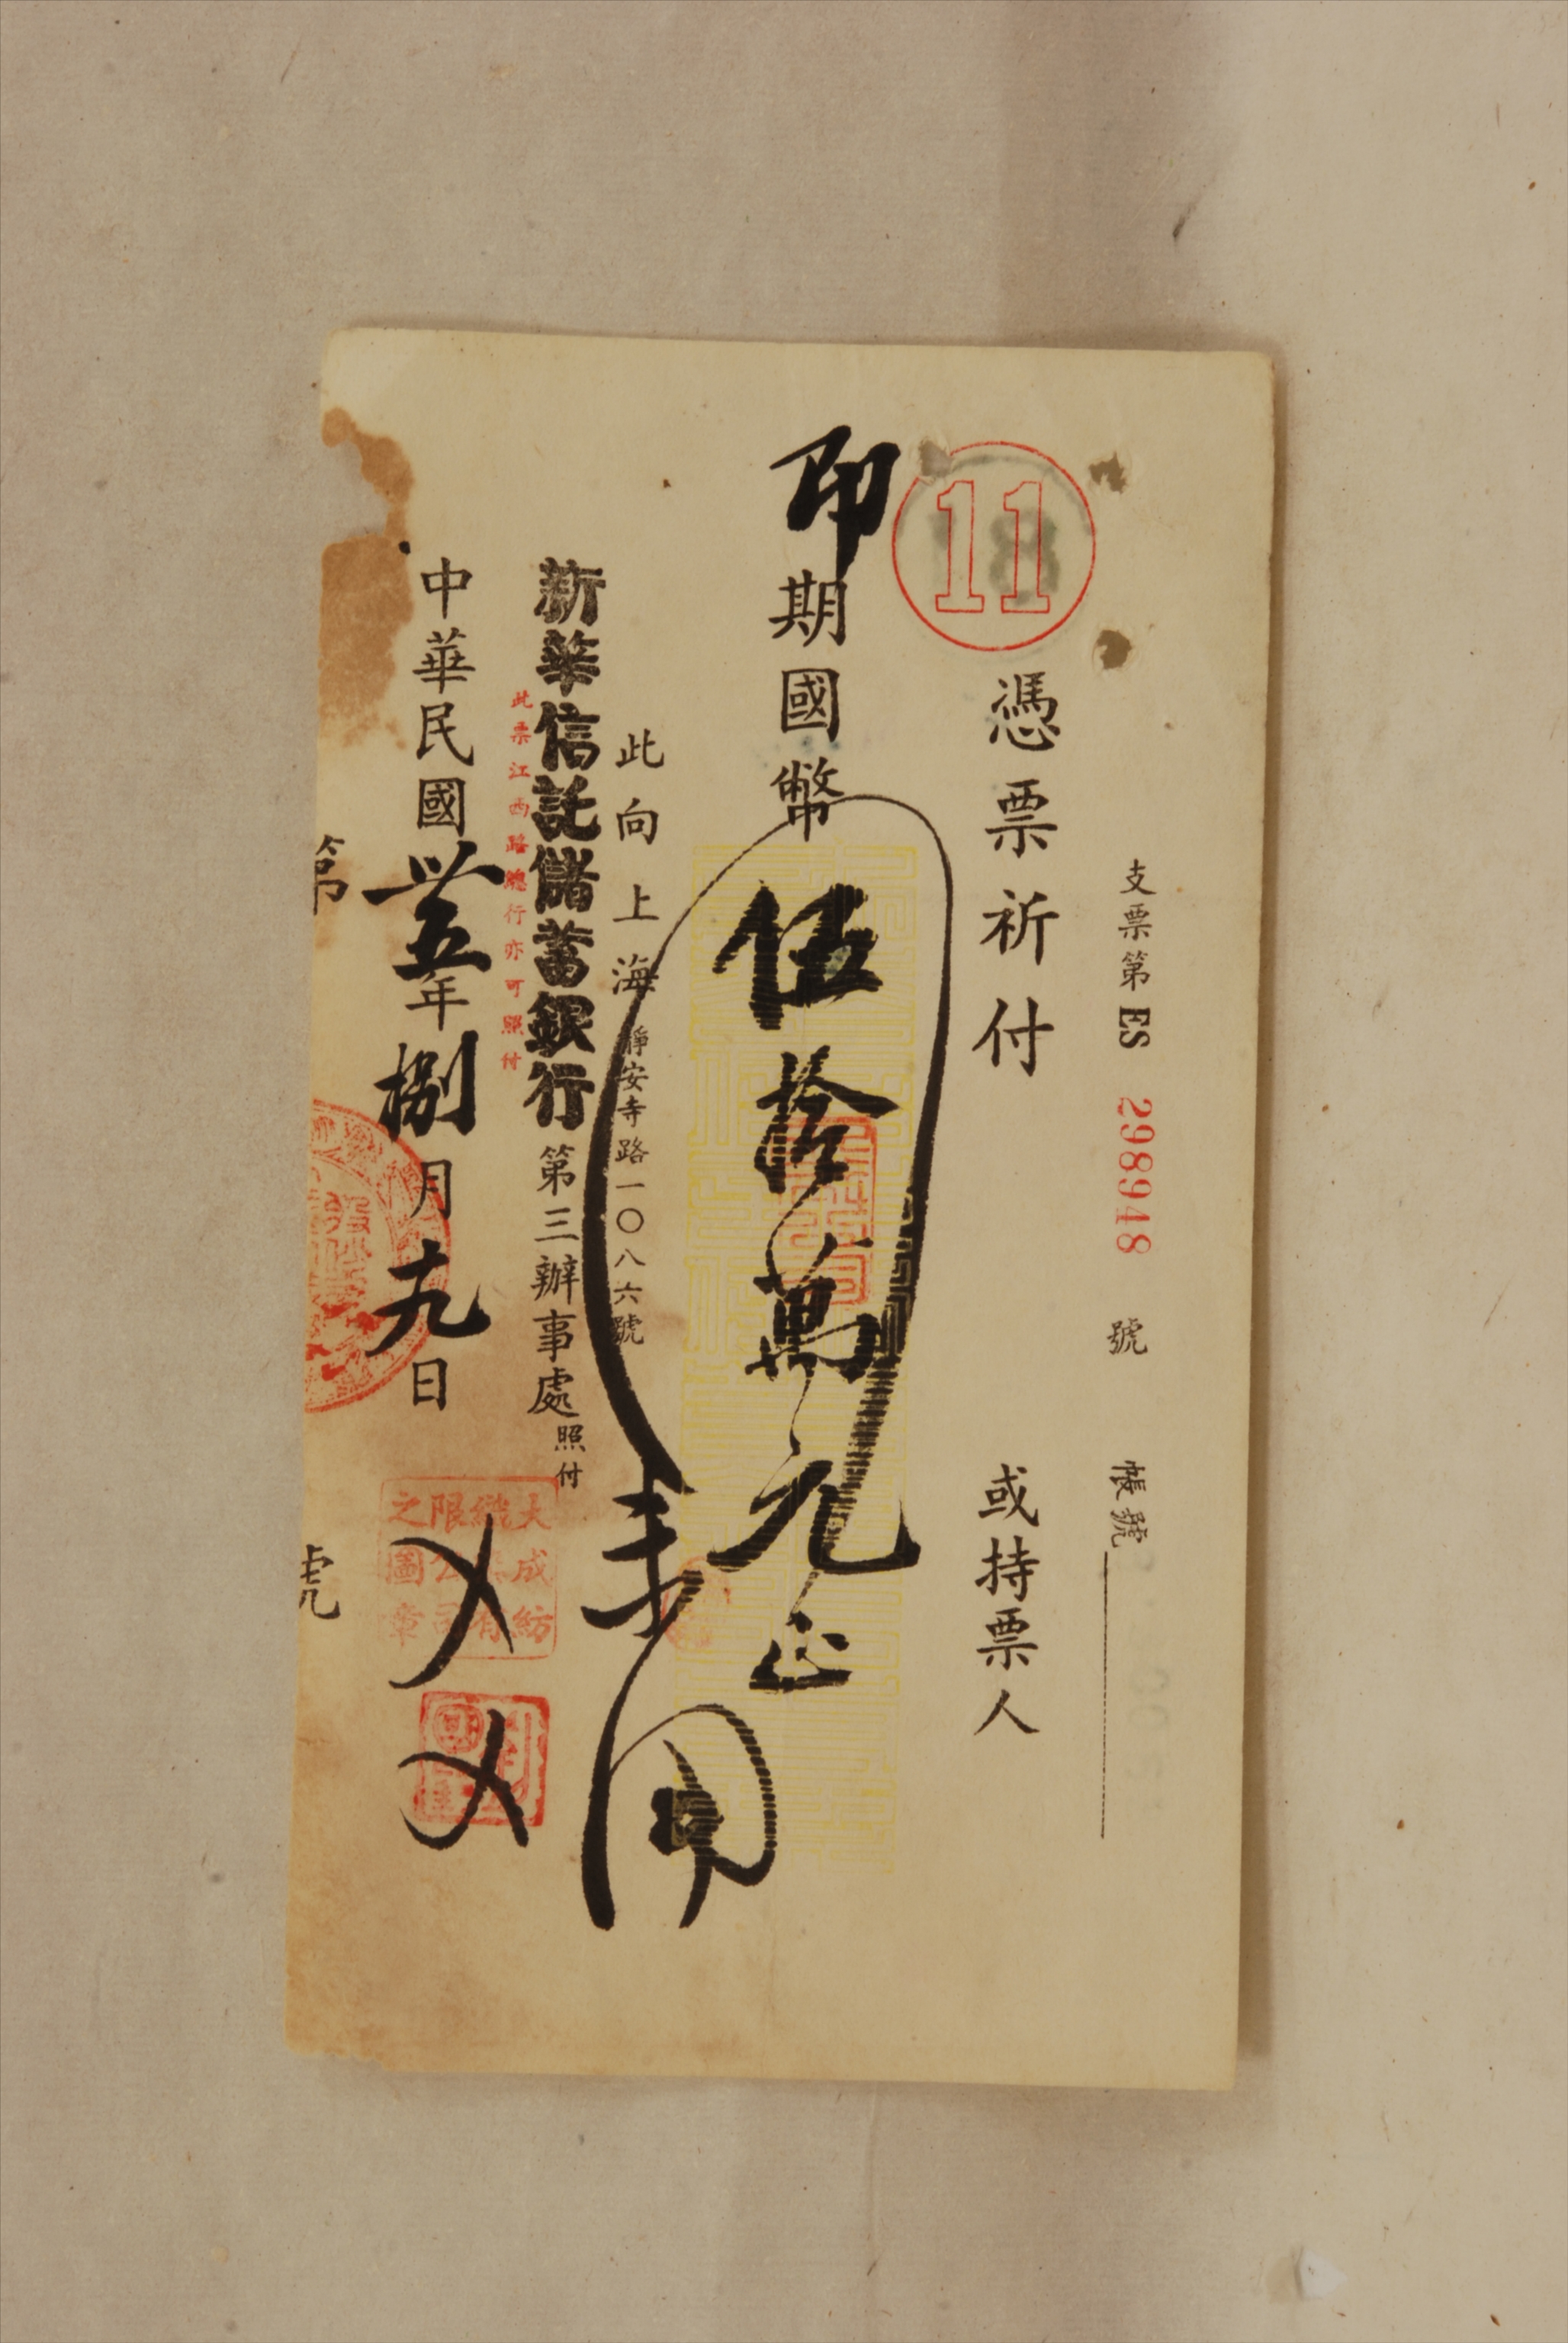 支票第 ES 298948 號 帳號
11
憑票祈付 或持票人
即期國幣伍拾萬元正
此向上海靜安寺路一〇八六號
新華信託儲蓄銀行第三辦事處照付
此票江西路總行亦可照付
中華民國卅五年捌月九日
第 號
大成紡織
限公司
之圖章